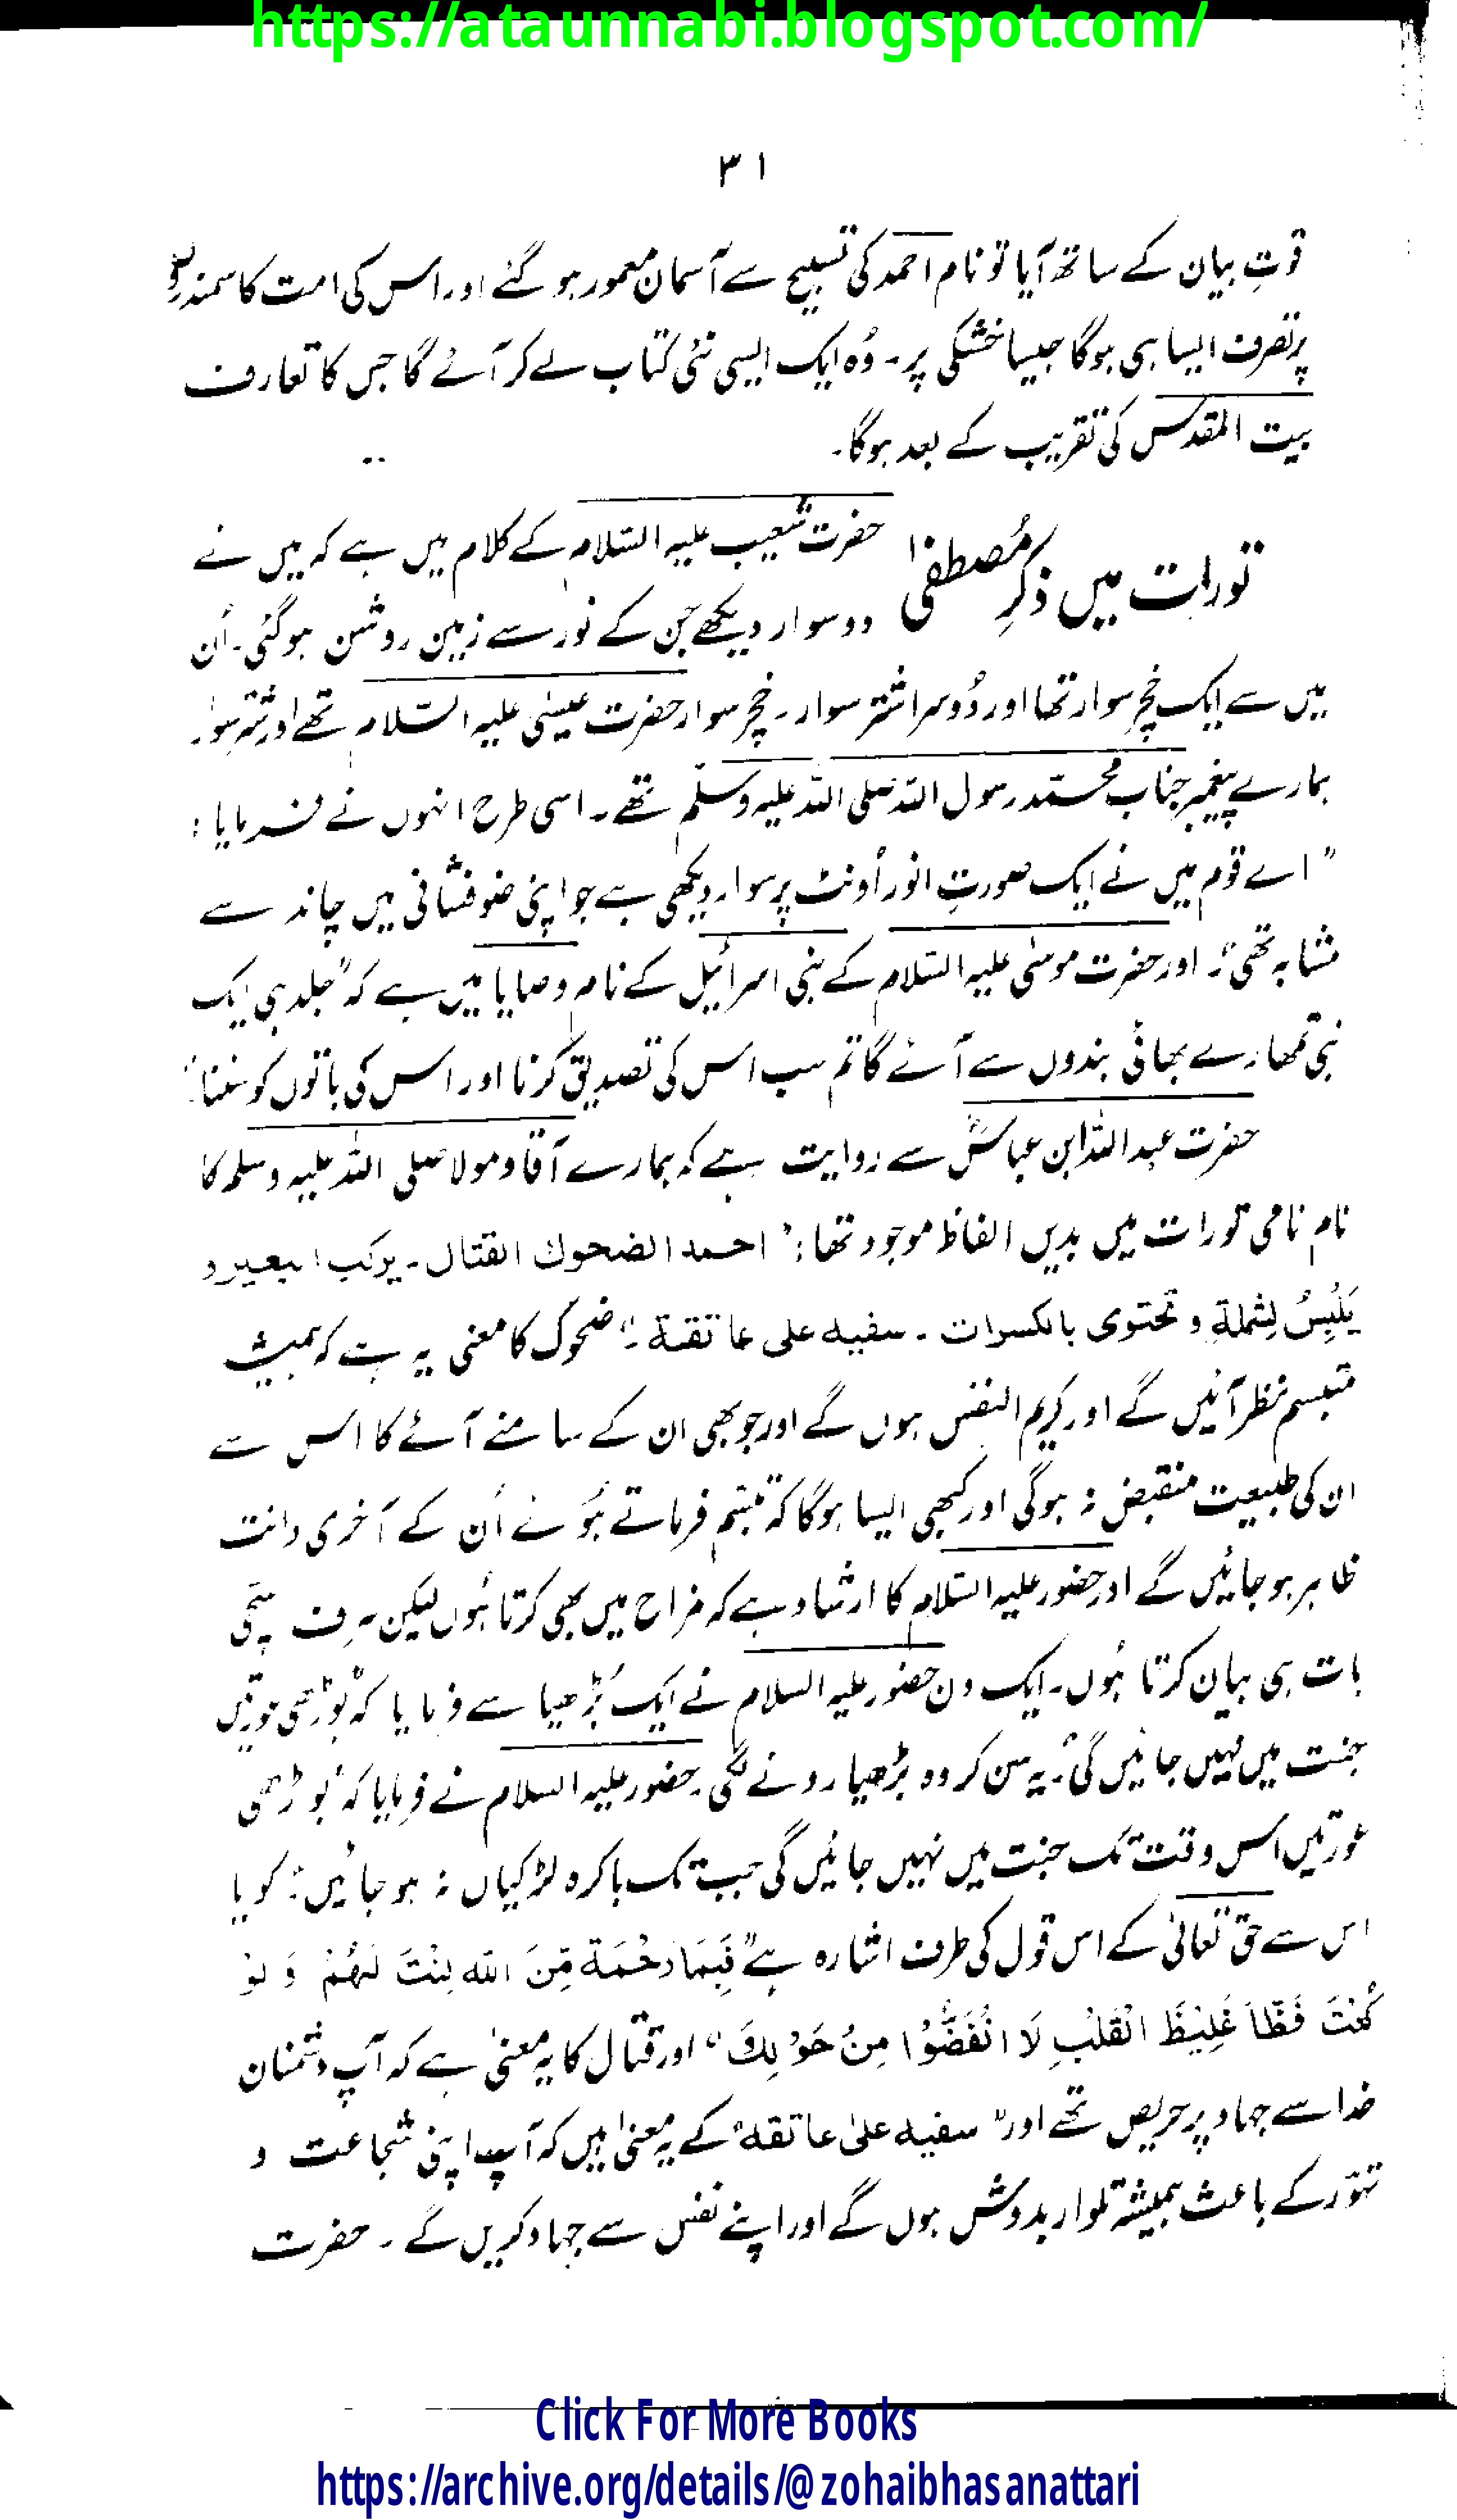 https://ataunnabi.blogspot.com/
۳۱
قوتِ بیان کے ساتھ آیا تو نام احمد کی تسبیح سے آسمان معمور ہو گئے اور اس کی امت کا سمندروں
پر تصرف ایسا ہی ہوگا جیسا خشکی پر۔ وُہ ایک ایسی نئی کتاب لے کر آئے گا جس کا تعارف
بیت المقدس کی تقریب کے بعد ہوگا۔
تورات میں ذکرِ مُصطفیٰ
حضرت شعیب علیہ السّلام کے کلام میں ہے کہ میں نے
دو سوار دیکھے جن کے نور سے زمین روشن ہو گئی۔ اُن
میں سے ایک خچر سوار تھا اور دُوسرا شتر سوار۔ خچر سوار حضرت عیسٰی علیہ السّلام تھے اور شتر سوار
ہمارے پیغمبر جناب محمّد رسول اللہ صلی اللہ علیہ وسلّم تھے۔ اسی طرح انہوں نے فرمایا:
"اے قوم میں نے ایک صورتِ انور اُونٹ پر سوار دیکھی ہے جو اپنی ضو فشانی میں چاند سے
مشابہ تھی"۔ اور حضرت موسٰی علیہ السّلام کے بنی اسرائیل کے نام وصایا میں ہے کہ "جلد ہی ایک
نبی تمھارے بھائی بندوں سے آئے گا تم سب اس کی تصدیق کرنا اور اس کی باتوں کو سننا"
حضرت عبداللہ ابن عباسؓ سے روایت ہے کہ ہمارے آقا و مولا صلی اللہ علیہ وسلم کا
نام نامی تورات میں بدیں الفاظ موجود تھا: "احمد الضحوك القتال۔ یركب البعیر و
یَلْبِسُ لِشملةِ و تحتوی بالکسرات۔ سفیه علی عاتقة"۔ ضحوک کا معنی یہ ہے کہ ہمیشہ
متبسم نظر آئیں گے اور کریم النفس ہوں گے اور جو بھی ان کے سامنے آئے گا اس سے
ان کی طبیعت منقبض نہ ہوگی اور کبھی ایسا ہوگا کہ تبسّم فرماتے ہُوئے اُن کے آخری دانت
ظاہر ہو جائیں گے اور حضور علیہ السّلام کا ارشاد ہے کہ مزاح میں بھی کرتا ہُوں لیکن صرف سچّی
بات ہی بیان کرتا ہُوں۔ ایک دن حضور علیہ السلام نے ایک بُڑھیا سے فرمایا کہ "بُوڑھی عورتیں
جنت میں نہیں جائیں گی"۔ یہ سن کر وہ بڑھیا رونے لگی۔ حضور علیہ السلام نے فرمایا کہ "بوڑھی
عورتیں اس وقت تک جنت میں نہیں جائیں گی جب تک باکرہ لڑکیاں نہ ہو جائیں"۔ گویا
اس سے حق تعالیٰ کے اس قول کی طرف اشارہ ہے "فَبِمَا رَحْمَةٍ مِّنَ اللّٰه لِنْتَ لَهُمْ وَ لَوْ
كُنْتَ فَظًّا غَلِیْظَ الْقَلْبِ لَا انْفَضُّوْا مِنْ حَوْلِكَ" اور قتال کا یہ معنیٰ ہے کہ آپ دشمنان
خدا سے جہاد پر حریص تھے اور "سفیه علیٰ عاتقه" کے یہ معنیٰ ہیں کہ آپ اپنی شجاعت و
تہوّر کے باعث ہمیشہ تلوار بدوش ہوں گے اور اپنے نفس سے جہاد کریں گے۔ حضرت
Click For More Books
https://archive.org/details/@zohaibhasanattari